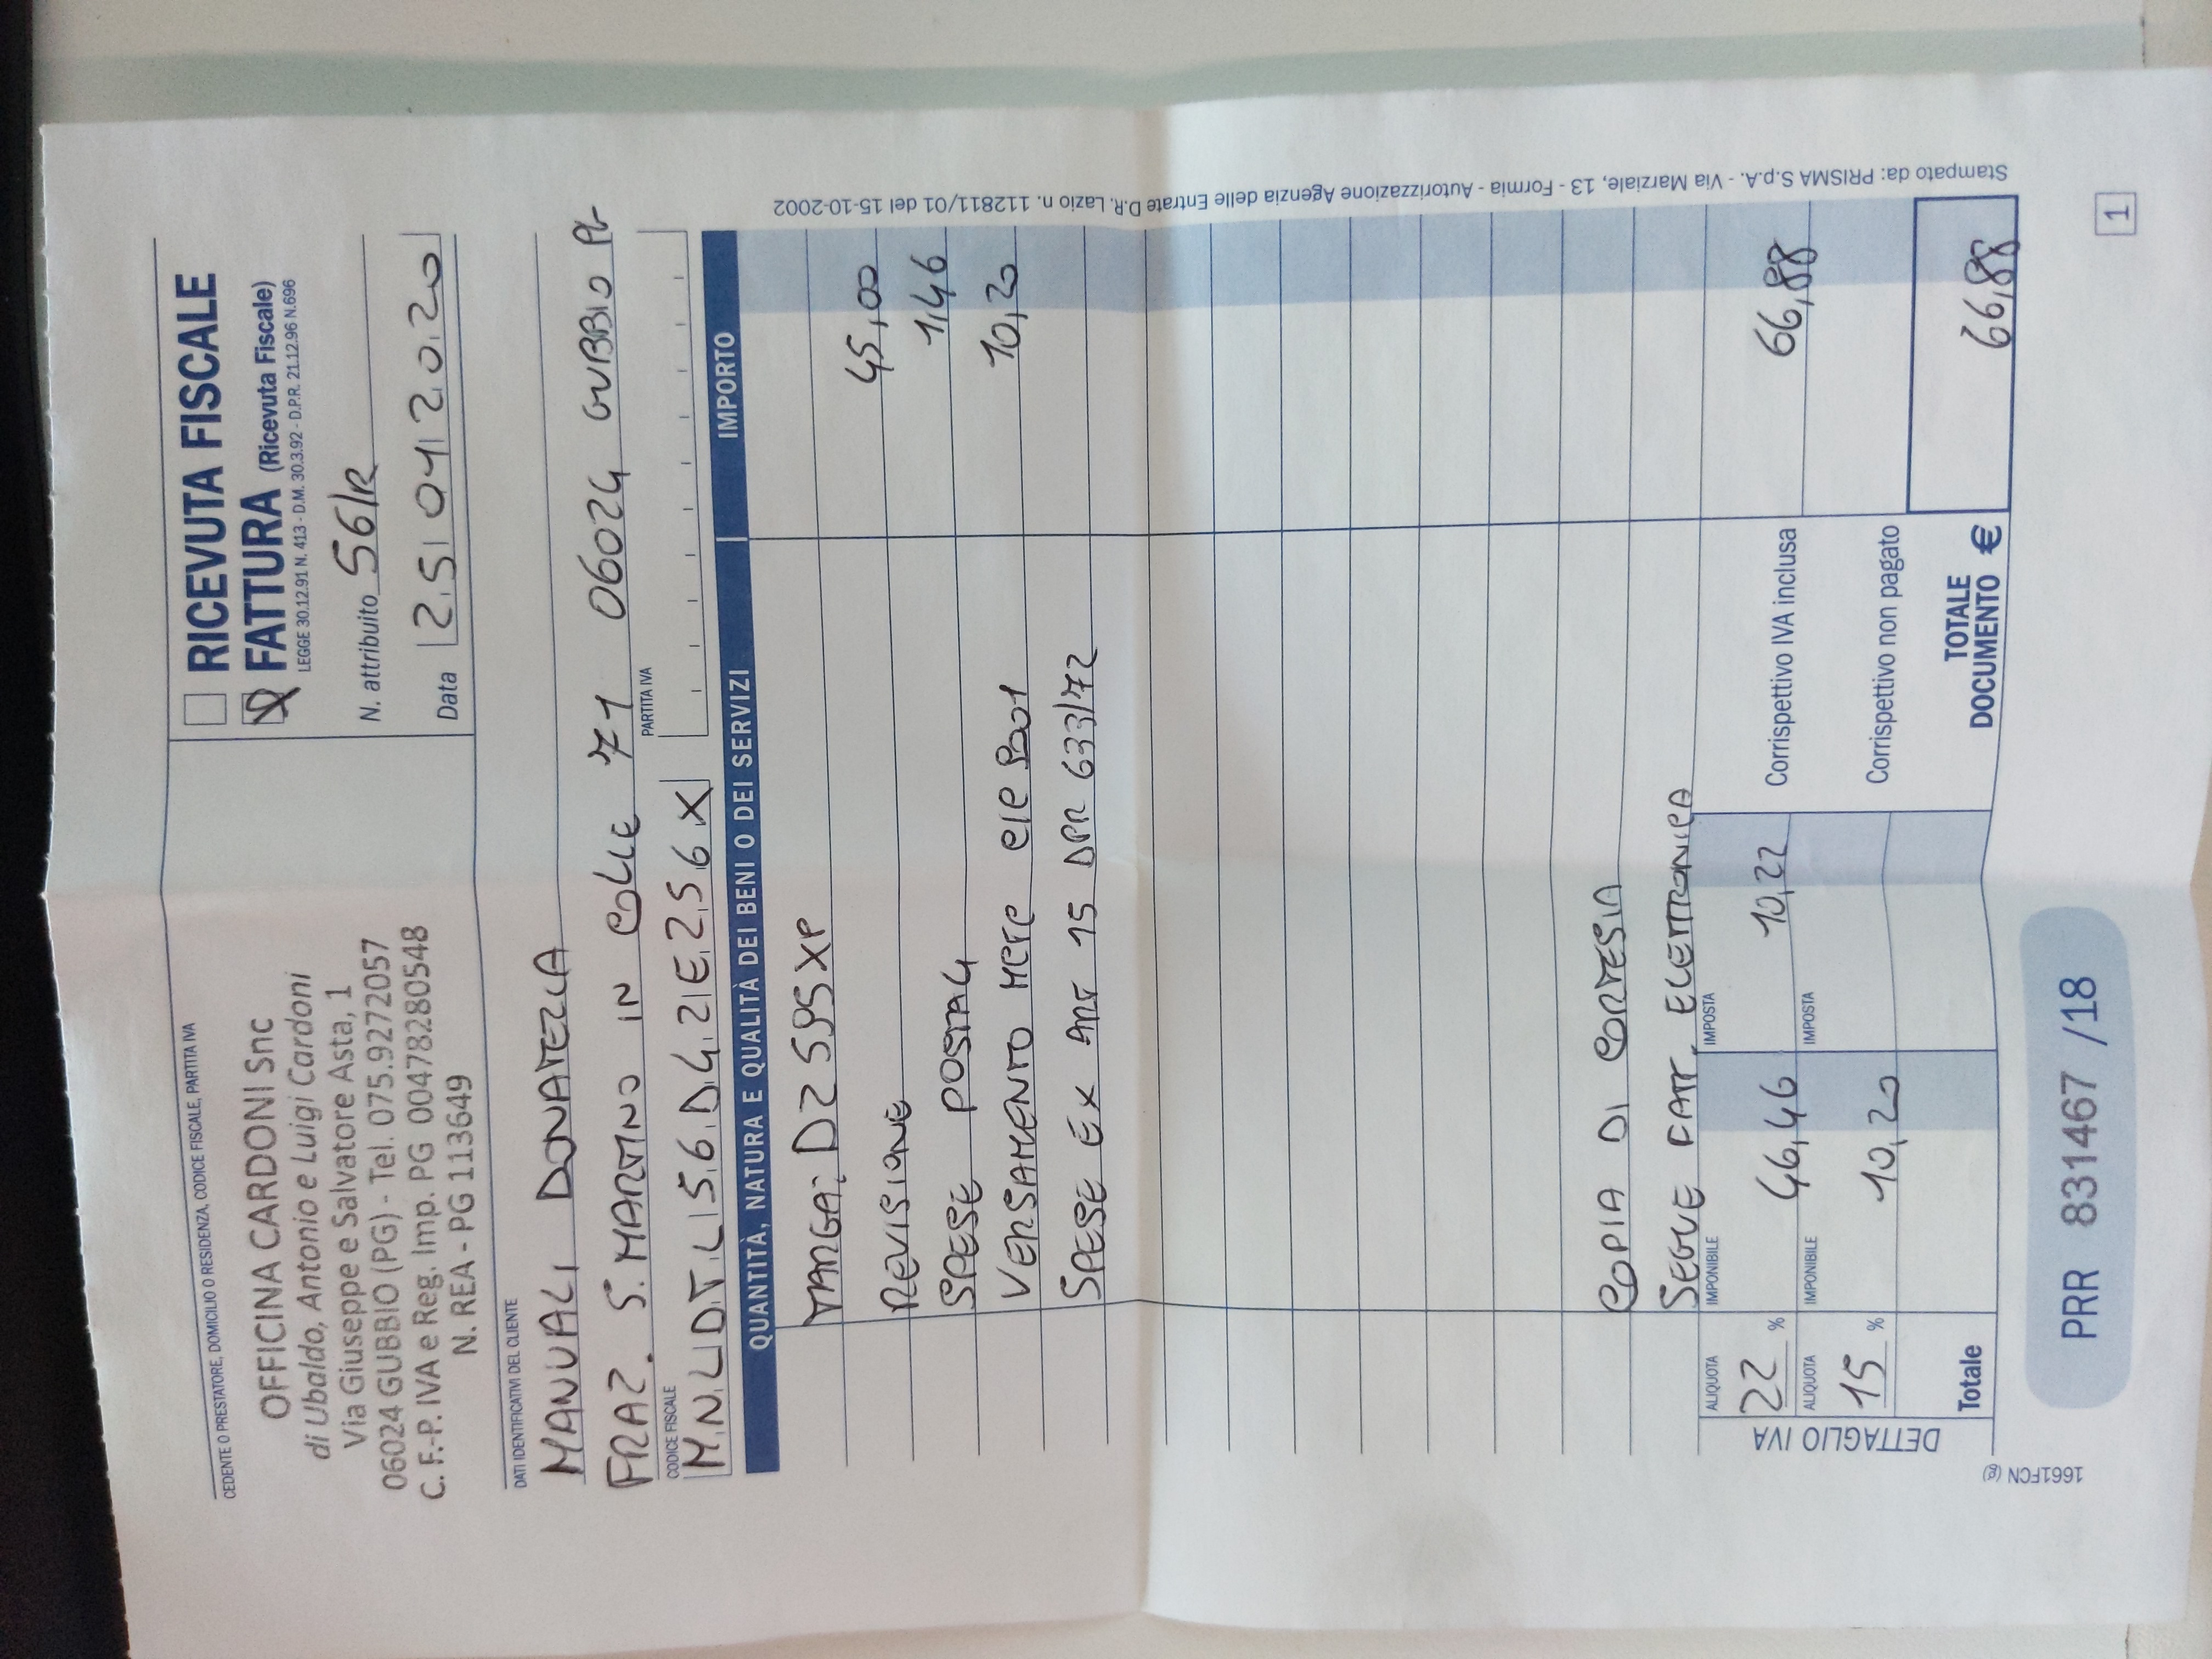 CEDENTE O PRESTATORE, DOMICILIO O RESIDENZA, CODICE FISCALE, PARTITA IVA
OFFICINA CARDONI Snc
di Ubaldo, Antonio e Luigi Cardoni
Via Giuseppe e Salvatore Asta, 1
06024 GUBBIO (PG) - Tel. 075.9272057
C. F.-P. IVA e Reg. Imp. PG 00478280548
N. REA - PG 113649
RICEVUTA FISCALE
FATTURA (Ricevuta Fiscale)
LEGGE 30.12.91 N. 413 - D.M. 30.3.92 - D.P.R. 21.12.96 N.696
N. attribuito 56/R
Data 25 01 2020
DATI IDENTIFICATIVI DEL CLIENTE
MANUALI DONATELLA
FRAZ. S. MARTINO IN COLLE 71 06024 GUBBIO PG
CODICE FISCALE
MNLDTL56D42E256X
PARTITA IVA
QUANTITÀ, NATURA E QUALITÀ DEI BENI O DEI SERVIZI IMPORTO
TARGA: DZ595XP
REVISIONE 45,00
SPESE POSTALI 1,46
VERSAMENTO MCTC C/C 9001 10,20
SPESE EX ART 15 DPR 633/72
COPIA DI CORTESIA
SEGUE FATT. ELETTRONICA
DETTAGLIO IVA
ALIQUOTA IMPONIBILE IMPOSTA
22 % 46,46 10,22 Corrispettivo IVA inclusa 66,88
ALIQUOTA IMPONIBILE IMPOSTA
15 % 10,20 Corrispettivo non pagato
Totale
TOTALE
DOCUMENTO € 66,88
1661FCN (g)
PRR 831467 /18
1
Stampato da: PRISMA S.p.A. - Via Marziale, 13 - Formia - Autorizzazione Agenzia delle Entrate D.R. Lazio n. 112811/01 del 15-10-2002